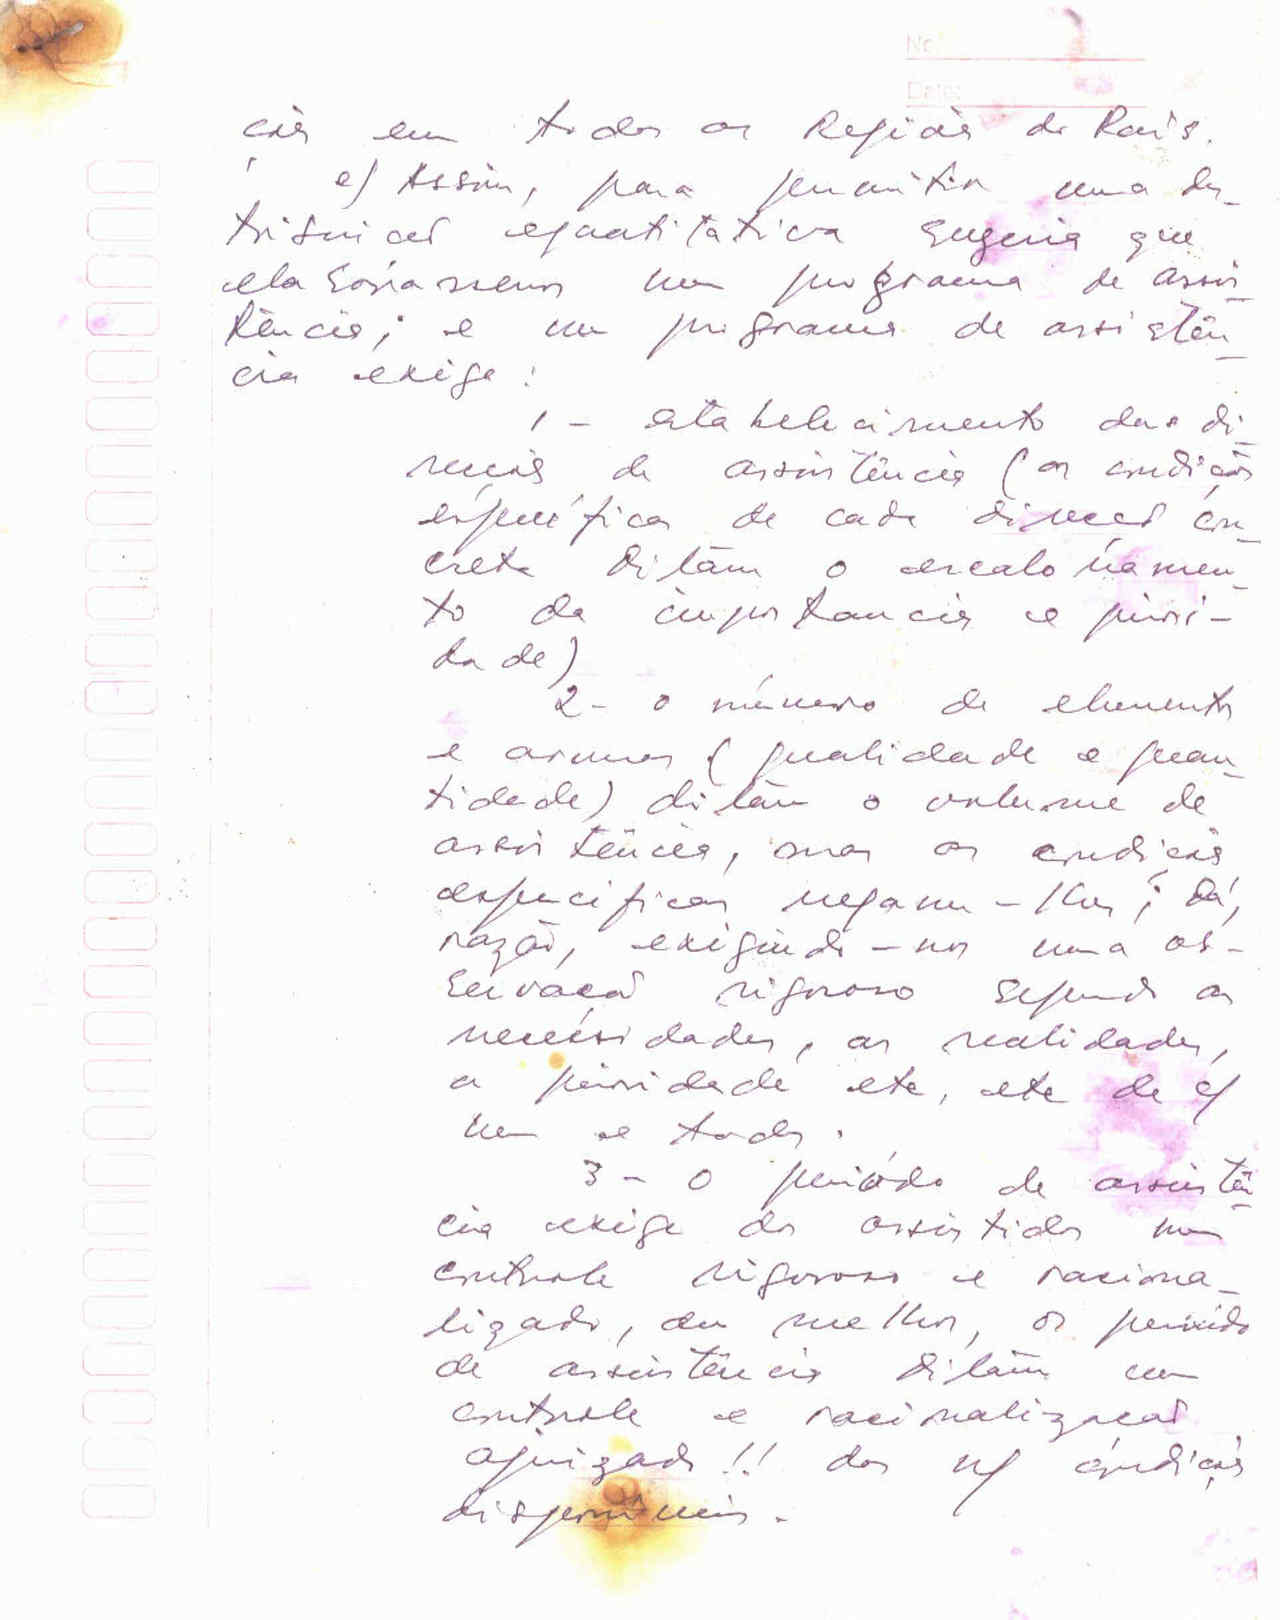 No:
Date:
cia em todas as Regiões do País.
e) Assim, para permitir uma dis-
tribuição equatitativa sugeria que
elaborassem um programa de assis-
tência; e um programa de assistên-
cia exige:
1 - estabelecimento das di-
recções de assistência (as condições
específicas de cada direcção con-
creta ditam o escalonamen-
to da importancia e priori-
dade)
2 - o número de elementos
e armas (qualidade e quan-
tidade) ditam o volume de
assistência, mas as condições
especificas negam-lhes;
razão, exigindo-nos uma ob-
servação rigoroso segundo as
necessidades, as realidades,
a prioridade etc, etc de c/
um e todos.
3 - O periódo de assistên-
cia exige dos assistidos um
controle rigoroso e raciona-
lizado, ou melhor, os periódo
de assistência ditam um
controle e racionalização
ajuizado!! das n/ condições
disponíveis.